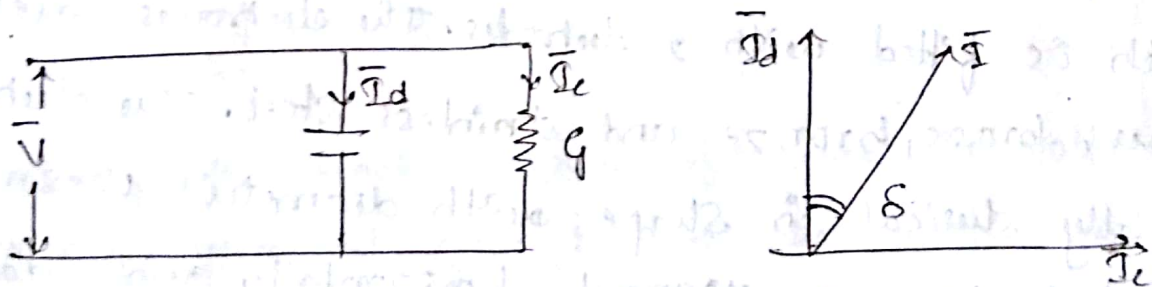 V̅
I̅d
I̅c
G
I̅d
I̅
δ
I̅c